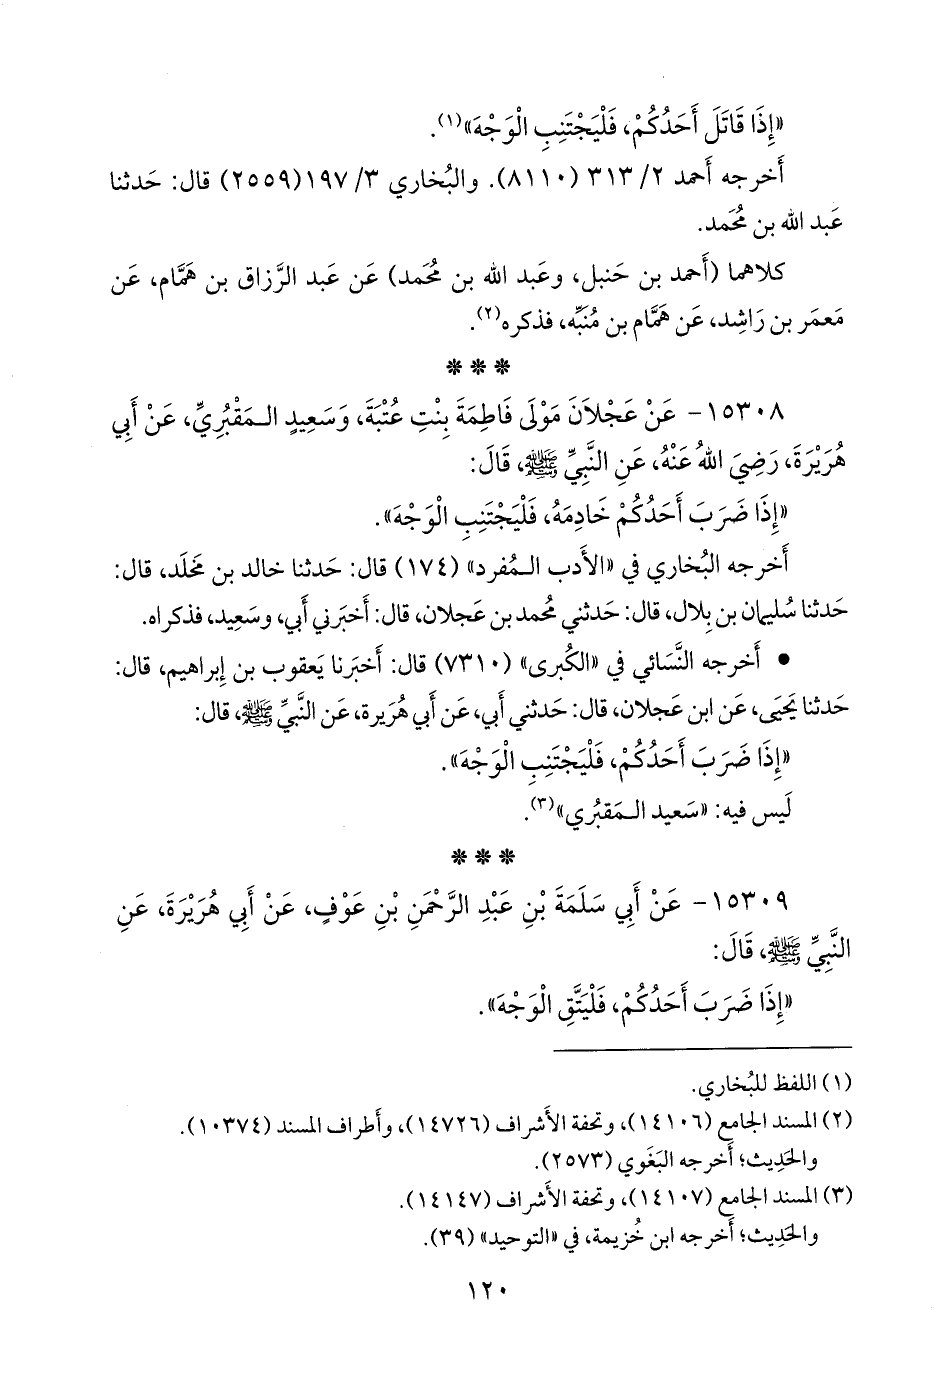 «إِذَا قَاتَلَ أَحَدُكُمْ، فَلْيَجْتَنِبِ الْوَجْهَ»(١).
أَخرجه أَحمد ٢/ ٣١٣ (٨١١٠). والبُخاري ٣/ ١٩٧(٢٥٥٩) قال: حَدثنا
عَبد الله بن مُحَمد.
كلاهما (أَحمد بن حَنبل، وعَبد الله بن مُحَمد) عَن عَبد الرَّزاق بن هَمَّام، عَن
مَعمَر بن رَاشِد، عَن هَمَّام بن مُنَبِّه، فذكره(٢).
* * *
١٥٣٠٨- عَنْ عَجْلاَنَ مَوْلَى فَاطِمَةَ بِنْتِ عُتْبَةَ، وَسَعِيدٍ الـمَقْبُرِيِّ، عَنْ أَبِي
هُرَيْرَةَ، رَضِيَ اللهُ عَنْهُ، عَنِ النَّبِيِّ ﷺ، قَالَ:
«إِذَا ضَرَبَ أَحَدُكُمْ خَادِمَهُ، فَلْيَجْتَنِبِ الْوَجْهَ».
أَخرجه البُخاري في «الأَدب الـمُفرد» (١٧٤) قال: حَدثنا خالد بن مَخلَد، قال:
حَدثنا سُليمان بن بِلال، قال: حَدثني مُحمد بن عَجلان، قال: أَخبَرني أَبي، وسَعِيد، فذكراه.
• أَخرجه النَّسَائي في «الكُبرى» (٧٣١٠) قال: أَخبَرنا يَعقوب بن إِبراهيم، قال:
حَدثنا يَحيَى، عَن ابن عَجلان، قال: حَدثني أَبي، عَن أَبي هُرَيرة، عَن النَّبيِّ ﷺ، قال:
«إِذَا ضَرَبَ أَحَدُكُمْ، فَلْيَجْتَنِبِ الْوَجْهَ».
لَيس فيه: «سَعيد الـمَقبُري»(٣).
* * *
١٥٣٠٩- عَنْ أَبِي سَلَمَةَ بْنِ عَبْدِ الرَّحْمَنِ بْنِ عَوْفٍ، عَنْ أَبِي هُرَيْرَةَ، عَنِ
النَّبِيِّ ﷺ، قَالَ:
«إِذَا ضَرَبَ أَحَدُكُمْ، فَلْيَتَّقِ الْوَجْهَ».
(١) اللفظ للبُخاري.
(٢) المسند الجامع (١٤١٠٦)، وتحفة الأَشراف (١٤٧٢٦)، وأَطراف المسند (١٠٣٧٤).
والحَدِيث؛ أَخرجه البَغَوي (٢٥٧٣).
(٣) المسند الجامع (١٤١٠٧)، وتحفة الأَشراف (١٤١٤٧).
والحَدِيث؛ أَخرجه ابن خُزيمة، في «التوحيد» (٣٩).
١٢٠